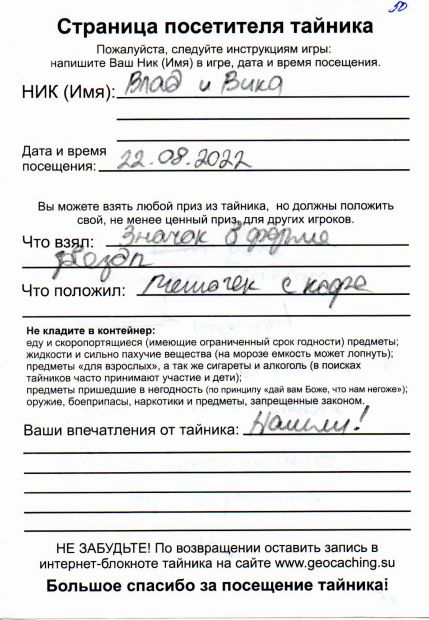 50
Страница посетителя тайника
Пожалуйста, следуйте инструкциям игры:
напишите Ваш Ник (Имя) в игре, дата и время посещения.
НИК (Имя): Влад и Вика
Дата и время
посещения: 22.08.2022
Вы можете взять любой приз из тайника, но должны положить
свой, не менее ценный приз, для других игроков.
Что взял: Значок в форме
Что положил: Мешочек с кофе
Не кладите в контейнер:
еду и скоропортящиеся (имеющие ограниченный срок годности) предметы;
жидкости и сильно пахучие вещества (на морозе емкость может лопнуть);
предметы «для взрослых», а так же сигареты и алкоголь (в поисках
тайников часто принимают участие и дети);
предметы пришедшие в негодность (по принципу «дай вам Боже, что нам негоже»);
оружие, боеприпасы, наркотики и предметы, запрещенные законом.
Ваши впечатления от тайника: Нашли!
НЕ ЗАБУДЬТЕ! По возвращении оставить запись в
интернет-блокноте тайника на сайте www.geocaching.su
Большое спасибо за посещение тайника!